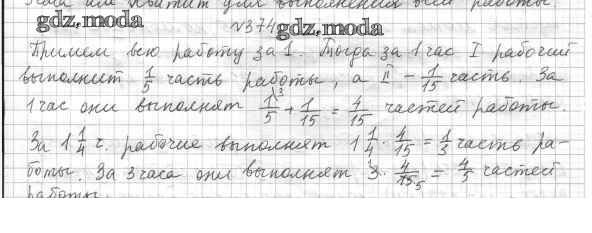 часа им хватит для выполнения всей работы
gdz.moda
№374
gdz.moda
Примем всю работу за 1. Тогда за 1 час I рабочий
выполнит 1/5 часть работы, а II – 1/15 часть. За
1 час они выполнят 1/5 \3 + 1/15 = 4/15 частей работы.
За 1 1/4 ч. рабочие выполнят 1 1/4 · 4/15 = 1/3 часть ра-
боты. За 3 часа они выполнят 3 · 4/15 5 = 4/5 частей
работы.